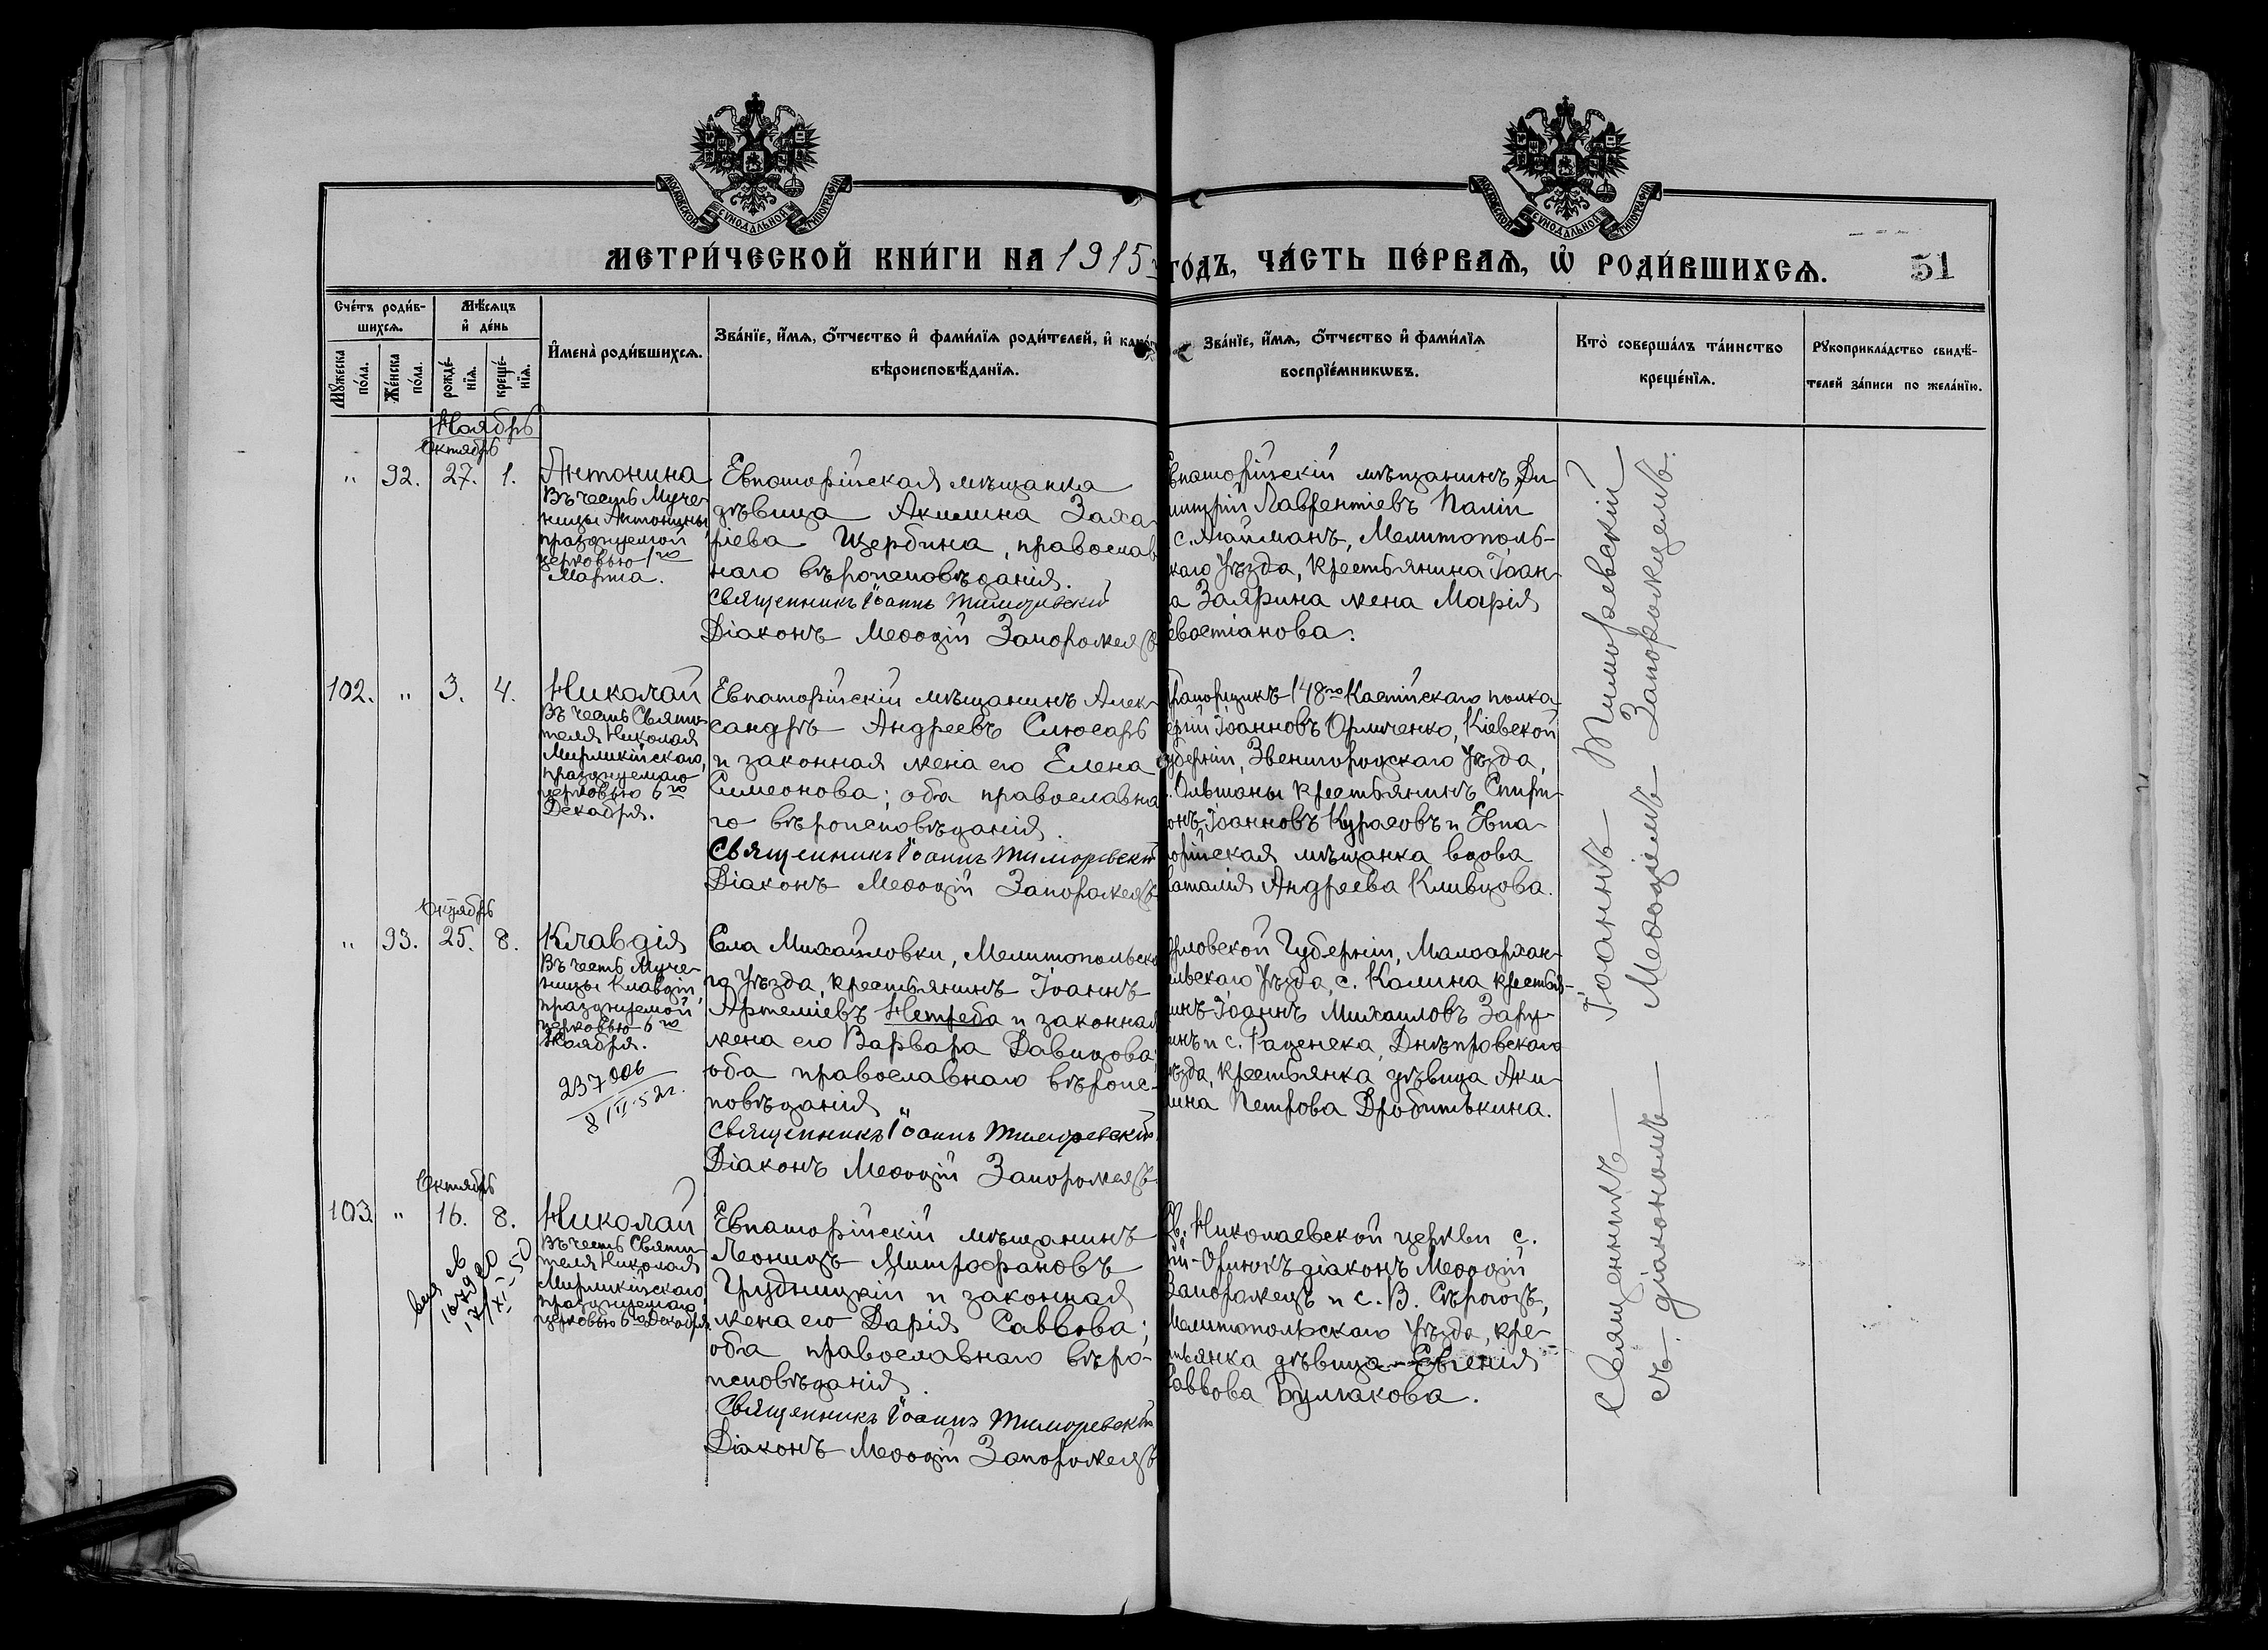 МОСКОВСКОЙ СУНОДАЛЬНОЙ ТИПОГРАФІИ
МОСКОВСКОЙ СУНОДАЛЬНОЙ ТИПОГРАФІИ
МЕТРИ́ЧЕСКОЙ КНИ́ГИ НА 1915
ГО́ДЪ, ЧА́СТЬ ПЕ́РВАѦ, Ѡ҆ РОДИ́ВШИХСѦ.
51
Сче́тъ роди́в-
шихсѧ.
Мꙋ́жеска по́ла.
Же́нска по́ла.
Мѣ́сѧцъ
и҆ де́нь
рожде́-
нїѧ.
креще́-
нїѧ.
И҆мена̀ роди́вшихсѧ.
Зва́нїе, и҆́мѧ, ѻ҆́тчество и҆ фами́лїѧ роди́телей, и҆
вѣроисповѣ́данїѧ.
Зва́нїе, и҆́мѧ, ѻ҆́тчество и҆ фами́лїѧ
воспрїе́мникѡвъ.
Кто̀ соверша́лъ та́инство
креще́нїѧ.
Рꙋкоприкла́дство свидѣ́-
телей за́писи по жела́нїю.
Ноябрь
Октябрь
" 92. 27. 1.
Антонина
Въ честь Муче-
ницы Антонины,
празднуемой
церковью 1го
Марта.
Евпаторійская мѣщанка
дѣвица Акилина Заха-
ріева Щербина, православ
наго вѣроисповѣданія.
Священникъ Іоаннъ Тимоѳевскій
Діаконъ Меѳодій Запорожецъ
впаторійскій мѣщанинъ Ди-
митрій Лаврентіевъ Палій
с. Майманъ, Мелитополь-
скаго уѣзда, крестьянина Іоан-
а Заярина жена Марія
евостіанова.
102. " 3. 4.
Николай
Въ честь Святи-
теля Николая
Мирликійскаго,
празднуемаго
церковью 6го
Декабря.
Евпаторійскій мѣщанинъ Алек-
сандръ Андреевъ Слюсарь
и законная жена его Елена
Симеонова; оба православна
го вѣроисповѣданія.
Священникъ Іоаннъ Тимоѳевскій
Діаконъ Меѳодій Запорожецъ
рапорщикъ 148го Каспійскаго полка
Іоанновъ Кіевской
уберніи, Звенигородскаго уѣзда,
Ольшаны крестьянинъ Спири-
онъ Іоанновъ Курасовъ и Евпа-
орійская мѣщанка вдова
аталія Андреева Кливцова.
Октябрь
" 93. 25. 8.
Клавдія
Въ честь Муче-
ницы Клавдіи,
празднуемой
церковью 6го
Ноября.
237006
8/III-52г.
Села Михайловки, Мелитопольска
го уѣзда, крестьянинъ Іоаннъ
Артеміевъ Нетреба и законная
жена его Варвара Давидова;
оба православнаго вѣроис-
повѣданія
Священникъ Іоаннъ Тимоѳевскій
Діаконъ Меѳодій Запорожецъ
рловской Губерніи, Малоархан-
ельскаго уѣзда, с. Колпна крестья-
инъ Іоаннъ Михаиловъ Зару-
инъ и с. Раденска, Днѣпровскаго
ѣзда, крестьянка дѣвица Аки-
лина Петрова Дробитькина.
Октябрь
103. " 16. 8.
Николай
Въ честь Святи-
теля Николая
Мирликійскаго,
празднуемаго
церковью 6го Декабря.
17/XI-50
Евпаторійскій мѣщанинъ
Леонидъ Митрофановъ
Грудницкій и законная
жена его Дарія Саввова;
оба православнаго вѣро-
исповѣданія.
Священникъ Іоаннъ Тимоѳевскій
Діаконъ Меѳодій Запорожецъ
Св. Николаевской церкви с.
діаконъ Меѳодій
Запорожецъ и с. В. Сѣрогозъ,
Мелитопольскаго уѣзда, кре-
стьянка дѣвица Евгенія
аввова Булгакова.
Священникъ Іоаннъ Тимоѳевскій
съ діакономъ Меѳодіемъ Запорожцемъ.